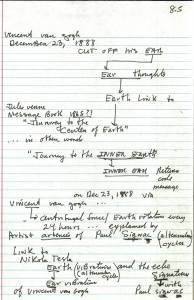 8:5
Vincent van gogh
December 23, 1888
CUT OFF his EAR
Ear thoughts
Earth Link to
Jules Verne
Message Book
"Journey to the
Center of Earth"
... in other words
"Journey to the INNER EARTH
INNER EAR Return
code
message
on Dec 23, 1888 VIA
Vincent van gogh ...
centrifugal force / Earth rotation every
24 hours ... explained by
Artist of Paul Signac
cycles
Link to
Nikola Tesla
Earth vibrations and the echo
signatures
Ear vibration with
of Vincent van Gogh Paul Signac